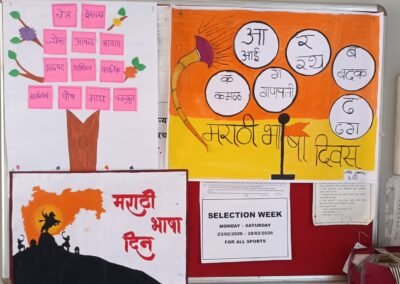 चैत्र वैशाख
ज्येष्ठ आषाढ श्रावण
भाद्रपद अश्विन कार्तिक
मार्गशीर्ष पौष माघ फाल्गुन
आ
आई
र
रथ
ब
बदक
क
कमळ
ग
गणपती
ढ
ढग
मराठी भाषा दिवस
मराठी
भाषा
दिन
SELECTION WEEK
MONDAY - SATURDAY
23/02/2026 - 28/02/2026
FOR ALL SPORTS